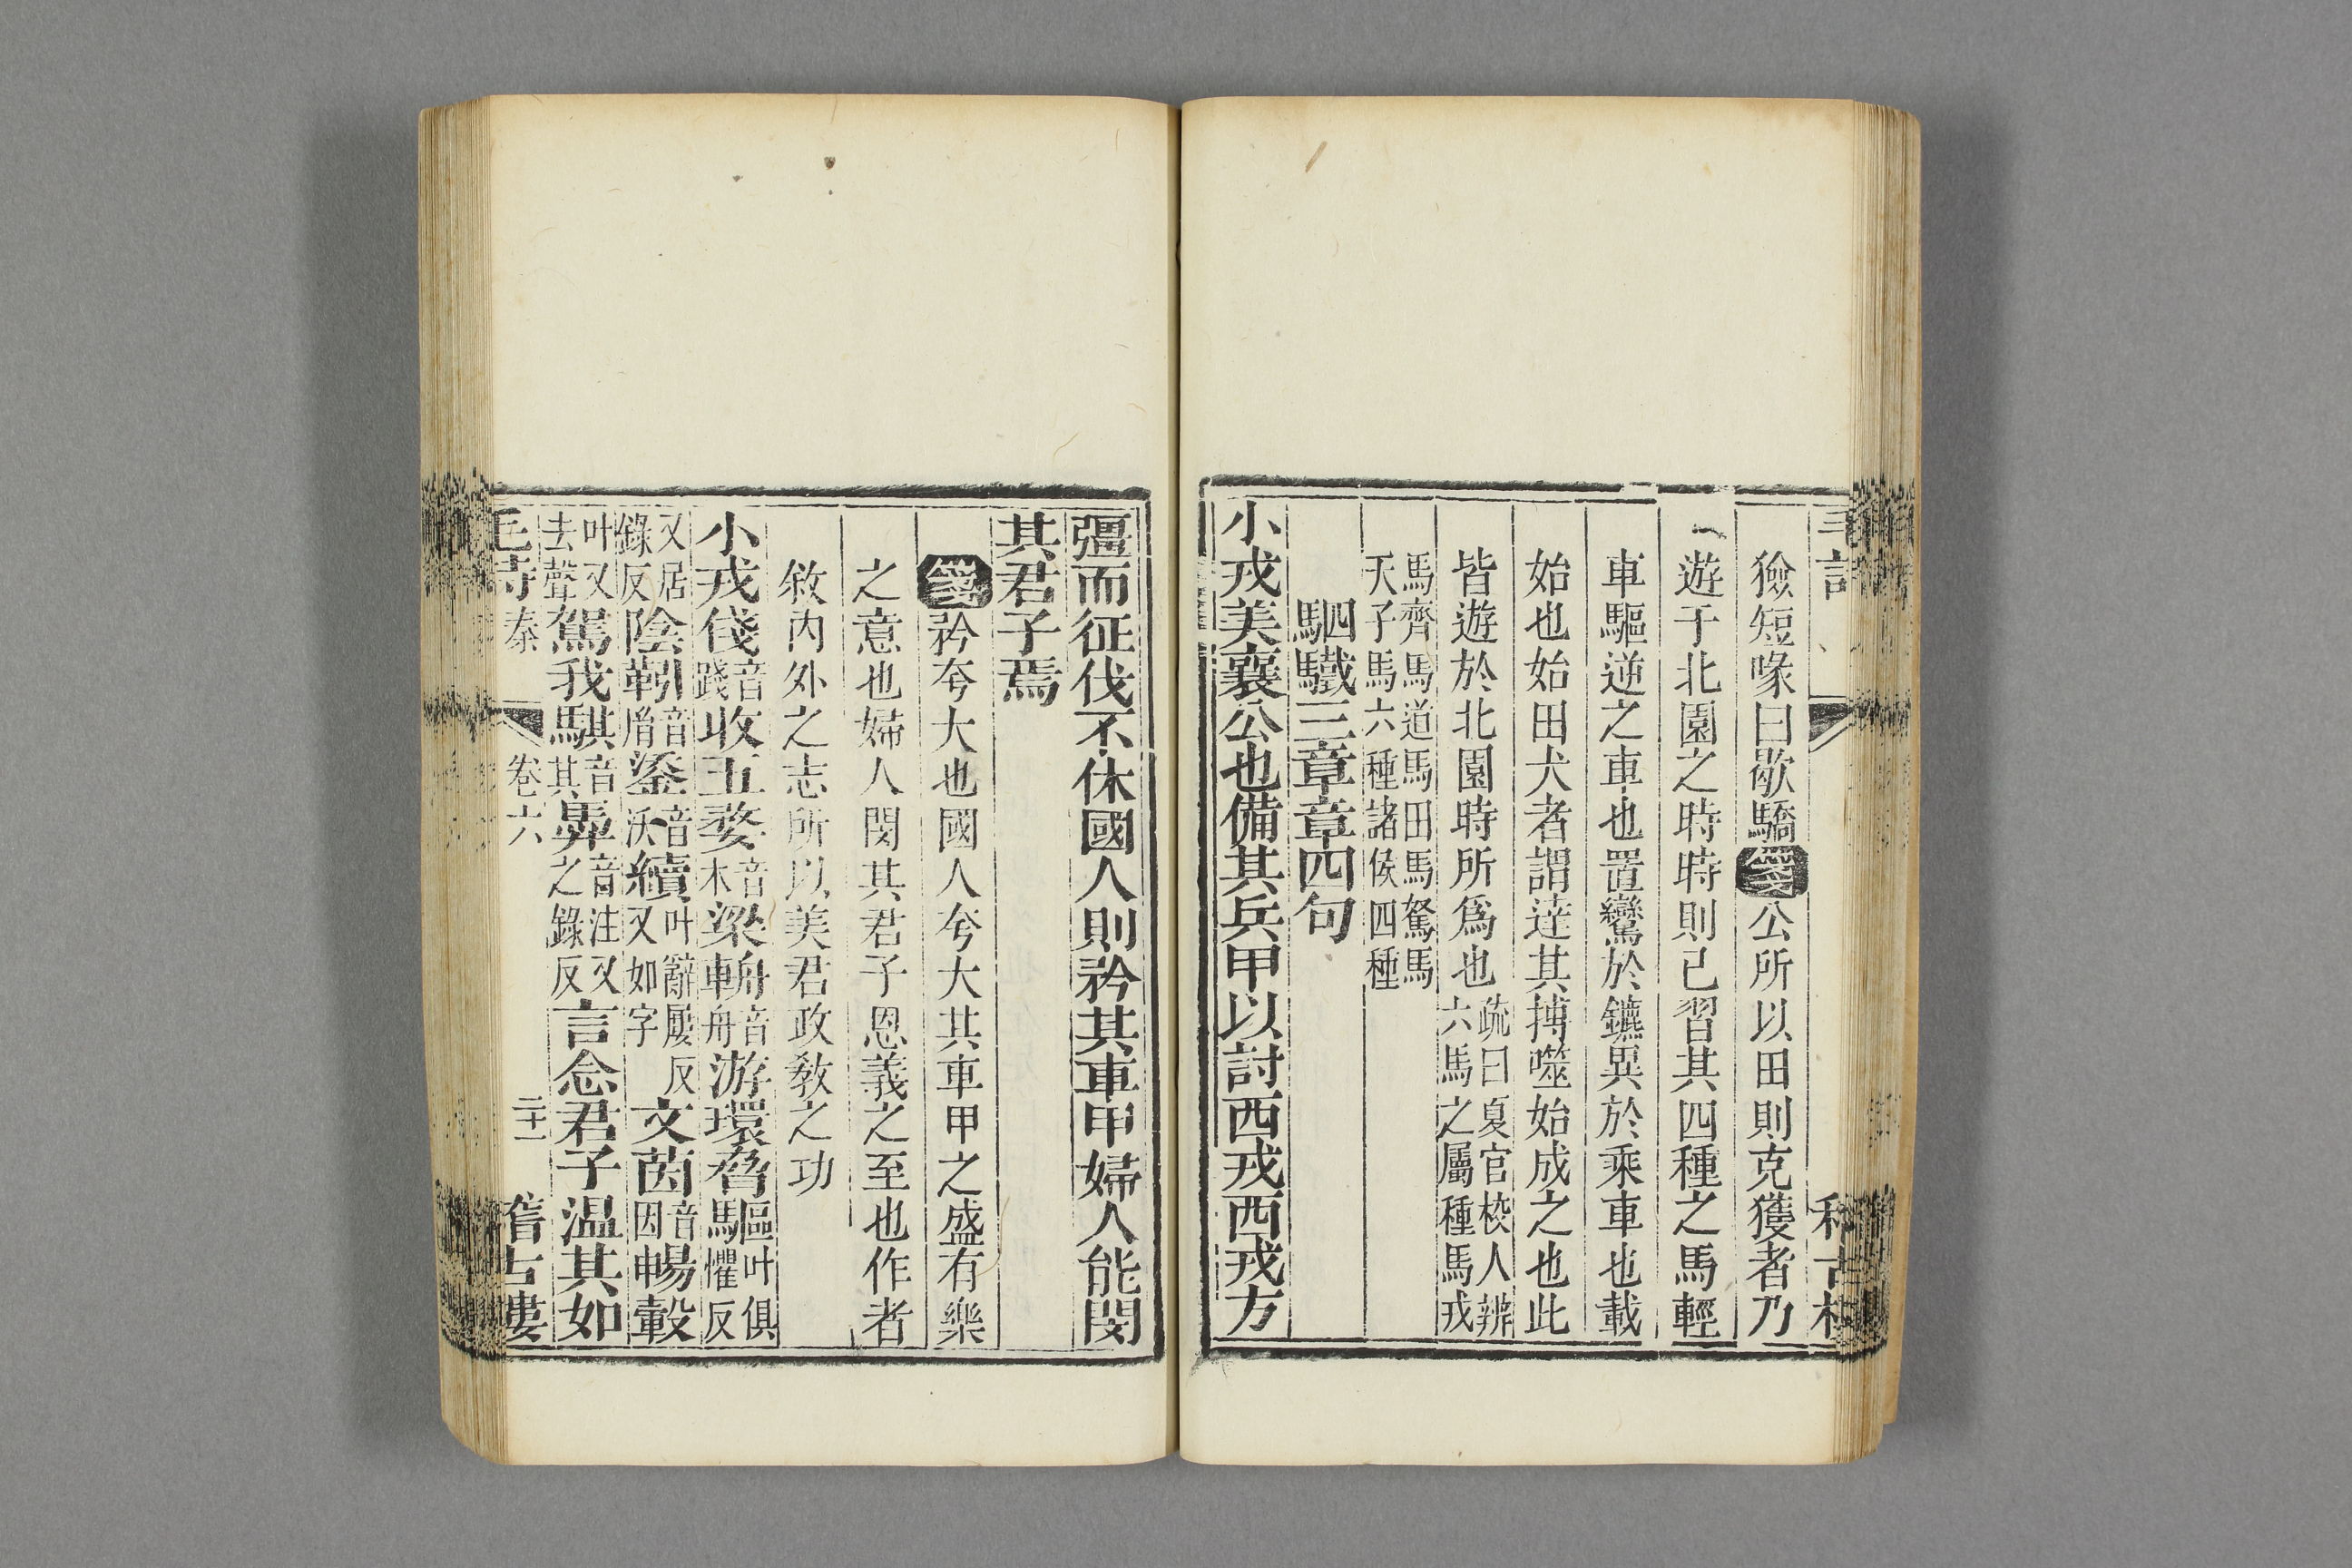 獫短喙曰歇驕箋公所以田則克獲者乃
遊于北園之時時則已習其四種之馬輕
車驅逆之車也置鸞於鑣異於乘車也載
始也始田犬者謂達其搏噬始成之也此
皆遊於北園時所爲也疏曰夏官校人辨
六馬之屬種馬戎
馬齊馬道馬田馬駑馬
天子馬六種諸侯四種
駟驖三章章四句
小戎美襄公也備其兵甲以討西戎西戎方
彊而征伐不休國人則矜其車甲婦人能閔
其君子焉
箋矜夸大也國人夸大其車甲之盛有樂
之意也婦人閔其君子恩義之至也作者
敘內外之志所以美君政敎之功
小戎俴音踐收五楘音木梁輈音舟車舟游環脅驅叶俱懼反
又居錄反陰靷音胤鋈音沃續叶辭屢反又如字文茵音因暢轂
叶又去聲駕我騏音其馵音注又之錄反言念君子溫其如
毛詩 秦 卷六 二十一 稽古樓